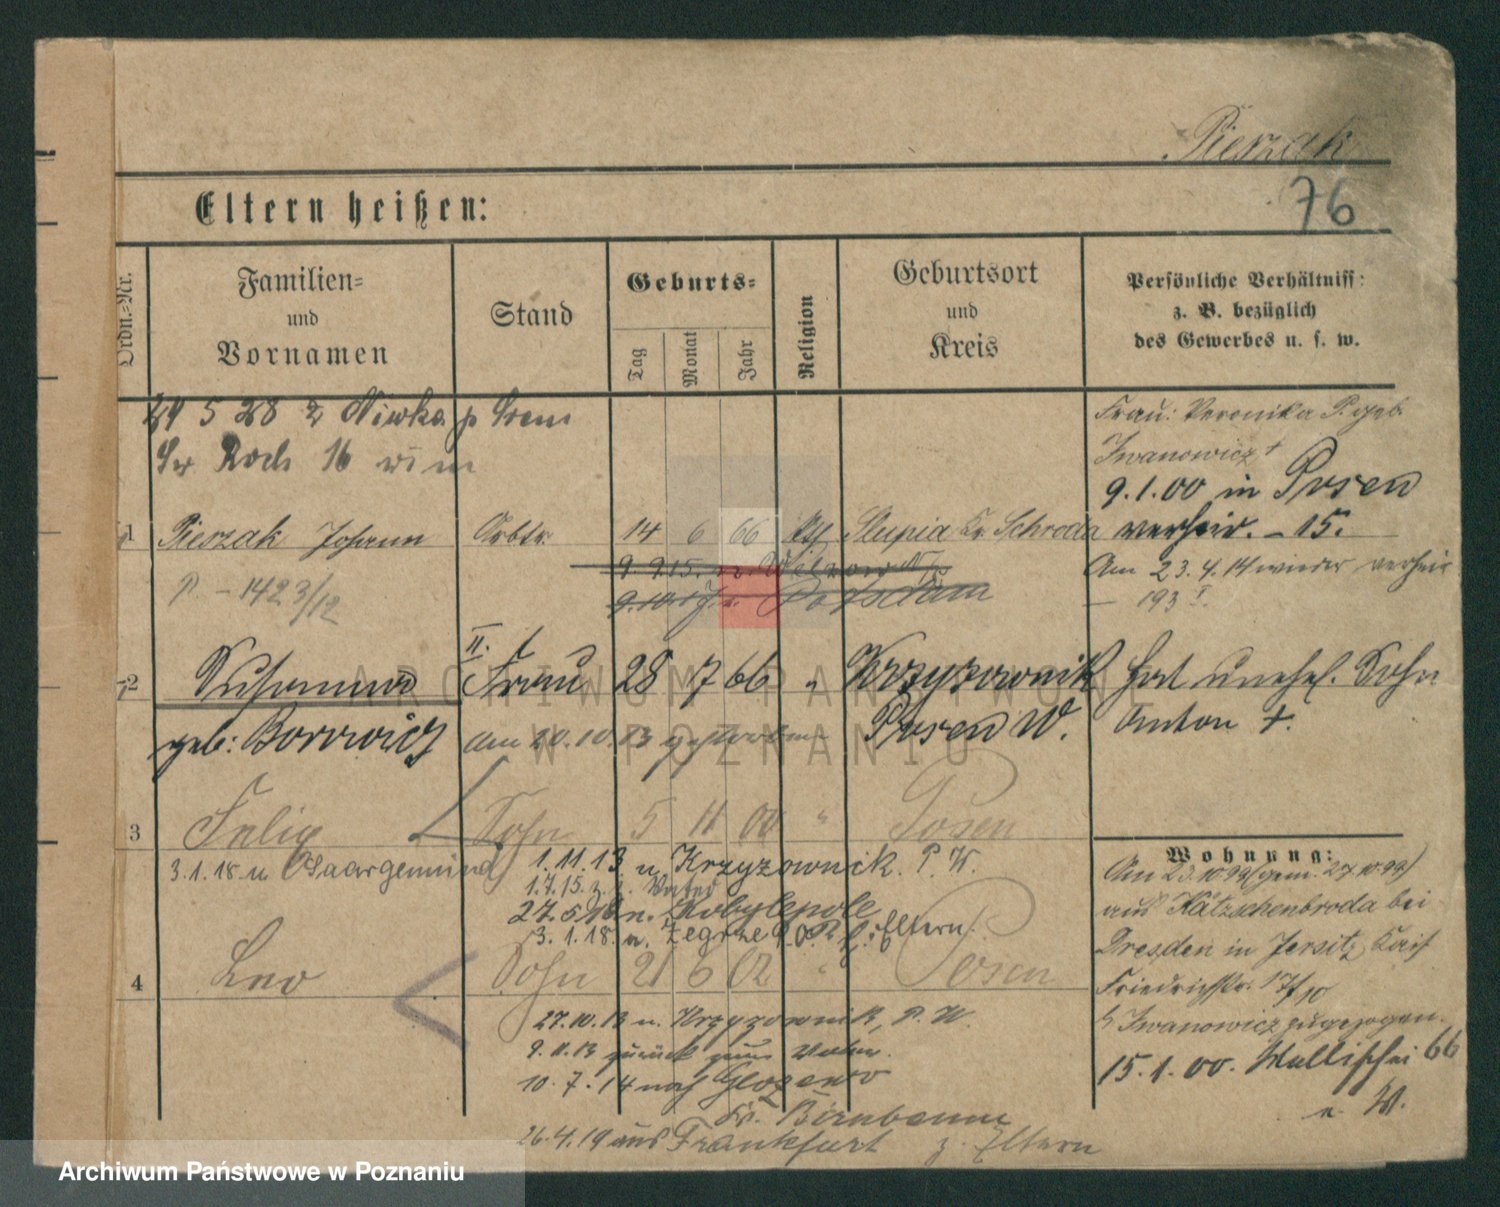 Pierzak
76
Eltern heißen:
Ordn.-Nr.
Familien-
und
Vornamen
Stand
Geburts-
Tag
Monat
Jahr
Religion
Geburtsort
und
Kreis
Persönliche Verhältniss:
z. B. bezüglich
des Gewerbes u. s. w.
24 5 28 z Niwka p Srem
Św. Roch 16 w m
Frau: Veronika P. geb.
Iwanowicz †
9.1.00 in Posen
verheir. - 15.
1 Pierzak Johann Arbtr. 14 6 66 Slupia Kr. Schroda
9.9.15. n.
Am 23.4.14 wieder verheir
P. - 1423/12
9.10.17 v. Potsdam
- 193
II.
2 Susanna Frau 28 7 66 " Krzyzownik
Hat unehel. Sohn
Anton †.
geb: Borowicz am 20.10.13 gestorben Posen W.
3 Felix Sohn 5 11 00 " Posen
3.1.18 n Saargemünd
1.11.13 n. Krzyzownik. P. W.
1.7.15. z. Vater
27.5.16 n. Kobylepole
3.1.18. n. Zegrze P. O. Eltern.
4 Leo Sohn 21 6 02 " Posen
27.10.13 n. Krzyzownik, P. W.
9.11.13 zurück zum Vater.
10.7.14 nach
Kr. Birnbaum
26.4.19 aus Frankfurt z. Eltern
Wohnung:
Am 23.10.99 (gem. 27.10.99)
aus Kötzschenbroda bei
Dresden in Jersitz, Kais
Friedrichstr. 17/10
b Iwanowicz zugezogen.
15.1.00. Wallischei 66
n. W.
ARCHIWUM PAŃSTWOWE
W POZNANIU
Archiwum Państwowe w Poznaniu